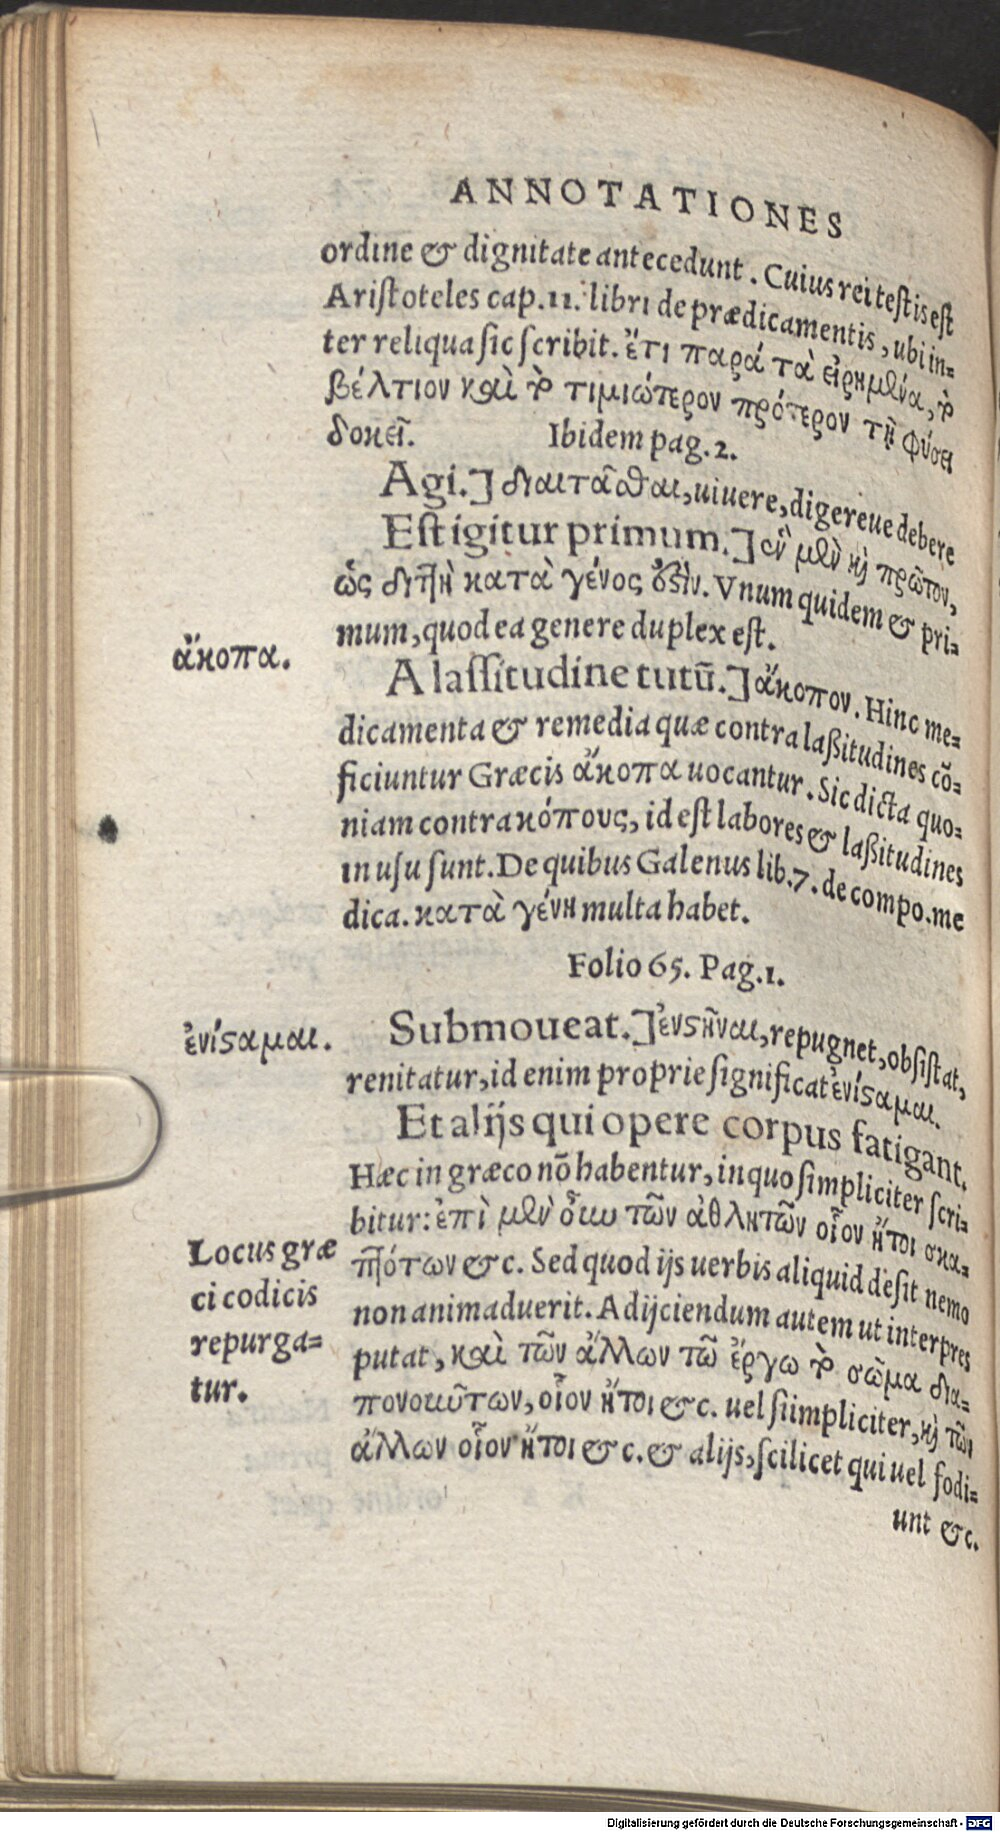 ANNOTATIONES
ordine & dignitate antecedunt. Cuius rei testis est
Aristoteles cap. 11. libri de prædicamentis, ubi in-
ter reliqua sic scribit. ἔτι παρά τὰ εἰρημένα, τὸ
βέλτιον καὶ τὸ τιμιώτερον πρότερον τῇ φύσει
δοκεῖ. Ibidem pag. 2.
Agi.] διαιτᾶσθαι, uiuere, digereue debere
Est igitur primum.] ἓν μὲν καὶ πρῶτον,
ὡς διττὴ κατὰ γένος ὅξιν. Vnum quidem & pri-
mum, quod ea genere duplex est.
ἄκοπα.
A lassitudine tutū.] ἄκοπον. Hinc me-
dicamenta & remedia quæ contra laßitudines cō-
ficiuntur Græcis ἄκοπα uocantur. Sic dicta quo-
niam contra κόπους, id est labores & laßitudines
in usu sunt. De quibus Galenus lib. 7. de compo. me
dica. κατὰ γένη multa habet.
Folio 65. Pag. 1.
ἐνίσαμαι.
Submoueat.] ἐνστῆναι, repugnet, obsistat,
renitatur, id enim proprie significat ἐνίσαμαι.
Et alijs qui opere corpus fatigant.
Hæc in græco nō habentur, in quo simpliciter scri-
bitur: ἐπὶ μὲν οὖν τῶν ἀθλητῶν οἷον ἤτοι σκα-
πτόντων &c. Sed quod ijs uerbis aliquid desit nemo
Locus græ
ci codicis
repurga-
tur.
non animaduerit. Adijciendum autem ut interpres
putat, καὶ τῶν ἄλλων τῷ ἔργῳ τὸ σῶμα δια-
πονούντων, οἷον ἤτοι &c. uel siimpliciter, καὶ τῶν
ἄλλων οἷον ἤτοι &c. & alijs, scilicet qui uel fodi-
unt &c.
Digitalisierung gefördert durch die Deutsche Forschungsgemeinschaft - DFG